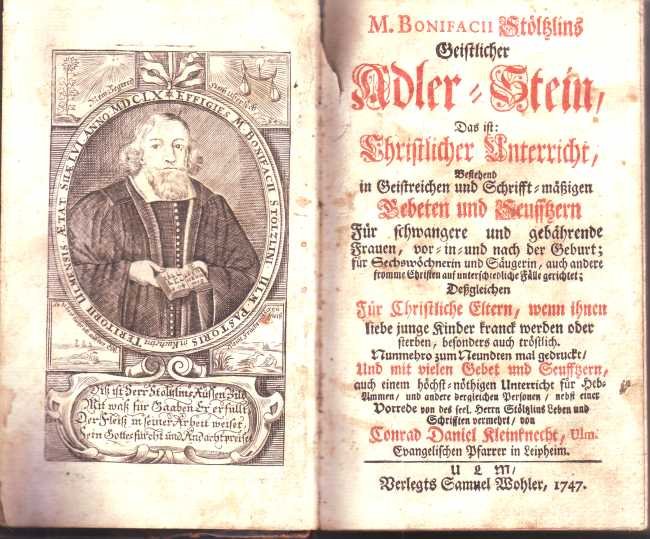 EFFIGIES M. BONIFACII STÖLZLINI ULM. PASTORIS in Kuchen TERITORII ULMENSIS ÆTAT SUÆ LVI ANNO MDCLX
Diß ist Herr Stöltzlins Aussen Bild
Mit waß für Gaaben Er erfüllt
Der Fleiß in seiner Arbeit weiset
Sein Gottesfurcht und Andacht preiset
M. BONIFACII Stöltzlins
Geistlicher
Adler-Stein,
Das ist:
Christlicher Unterricht,
Bestehend
in Geistreichen und Schrifft-mäßigen
Gebeten und Seufftzern
Für schwangere und gebährende
Frauen, vor-in-und nach der Geburt;
für Sechswöchnerin und Säugerin, auch andere
fromme Christen auf unterschiedliche Fälle gerichtet;
Deßgleichen
Für Christliche Eltern, wenn ihnen
liebe junge Kinder kranck werden oder
sterben, besonders auch tröstlich.
Nunmehro zum Neundten mal gedruckt/
Und mit vielen Gebet und Seufftzern,
auch einem höchst-nöthigen Unterricht für Heb-
Ammen/ und andere dergleichen Personen/ nebst einer
Vorrede von des seel. Herrn Stöltzlins Leben und
Schrifften vermehrt/ von
Conrad Daniel Kleinknecht, Ulm.
Evangelischen Pfarrer in Leipheim.
ULM/
Verlegts Samuel Wohler, 1747.